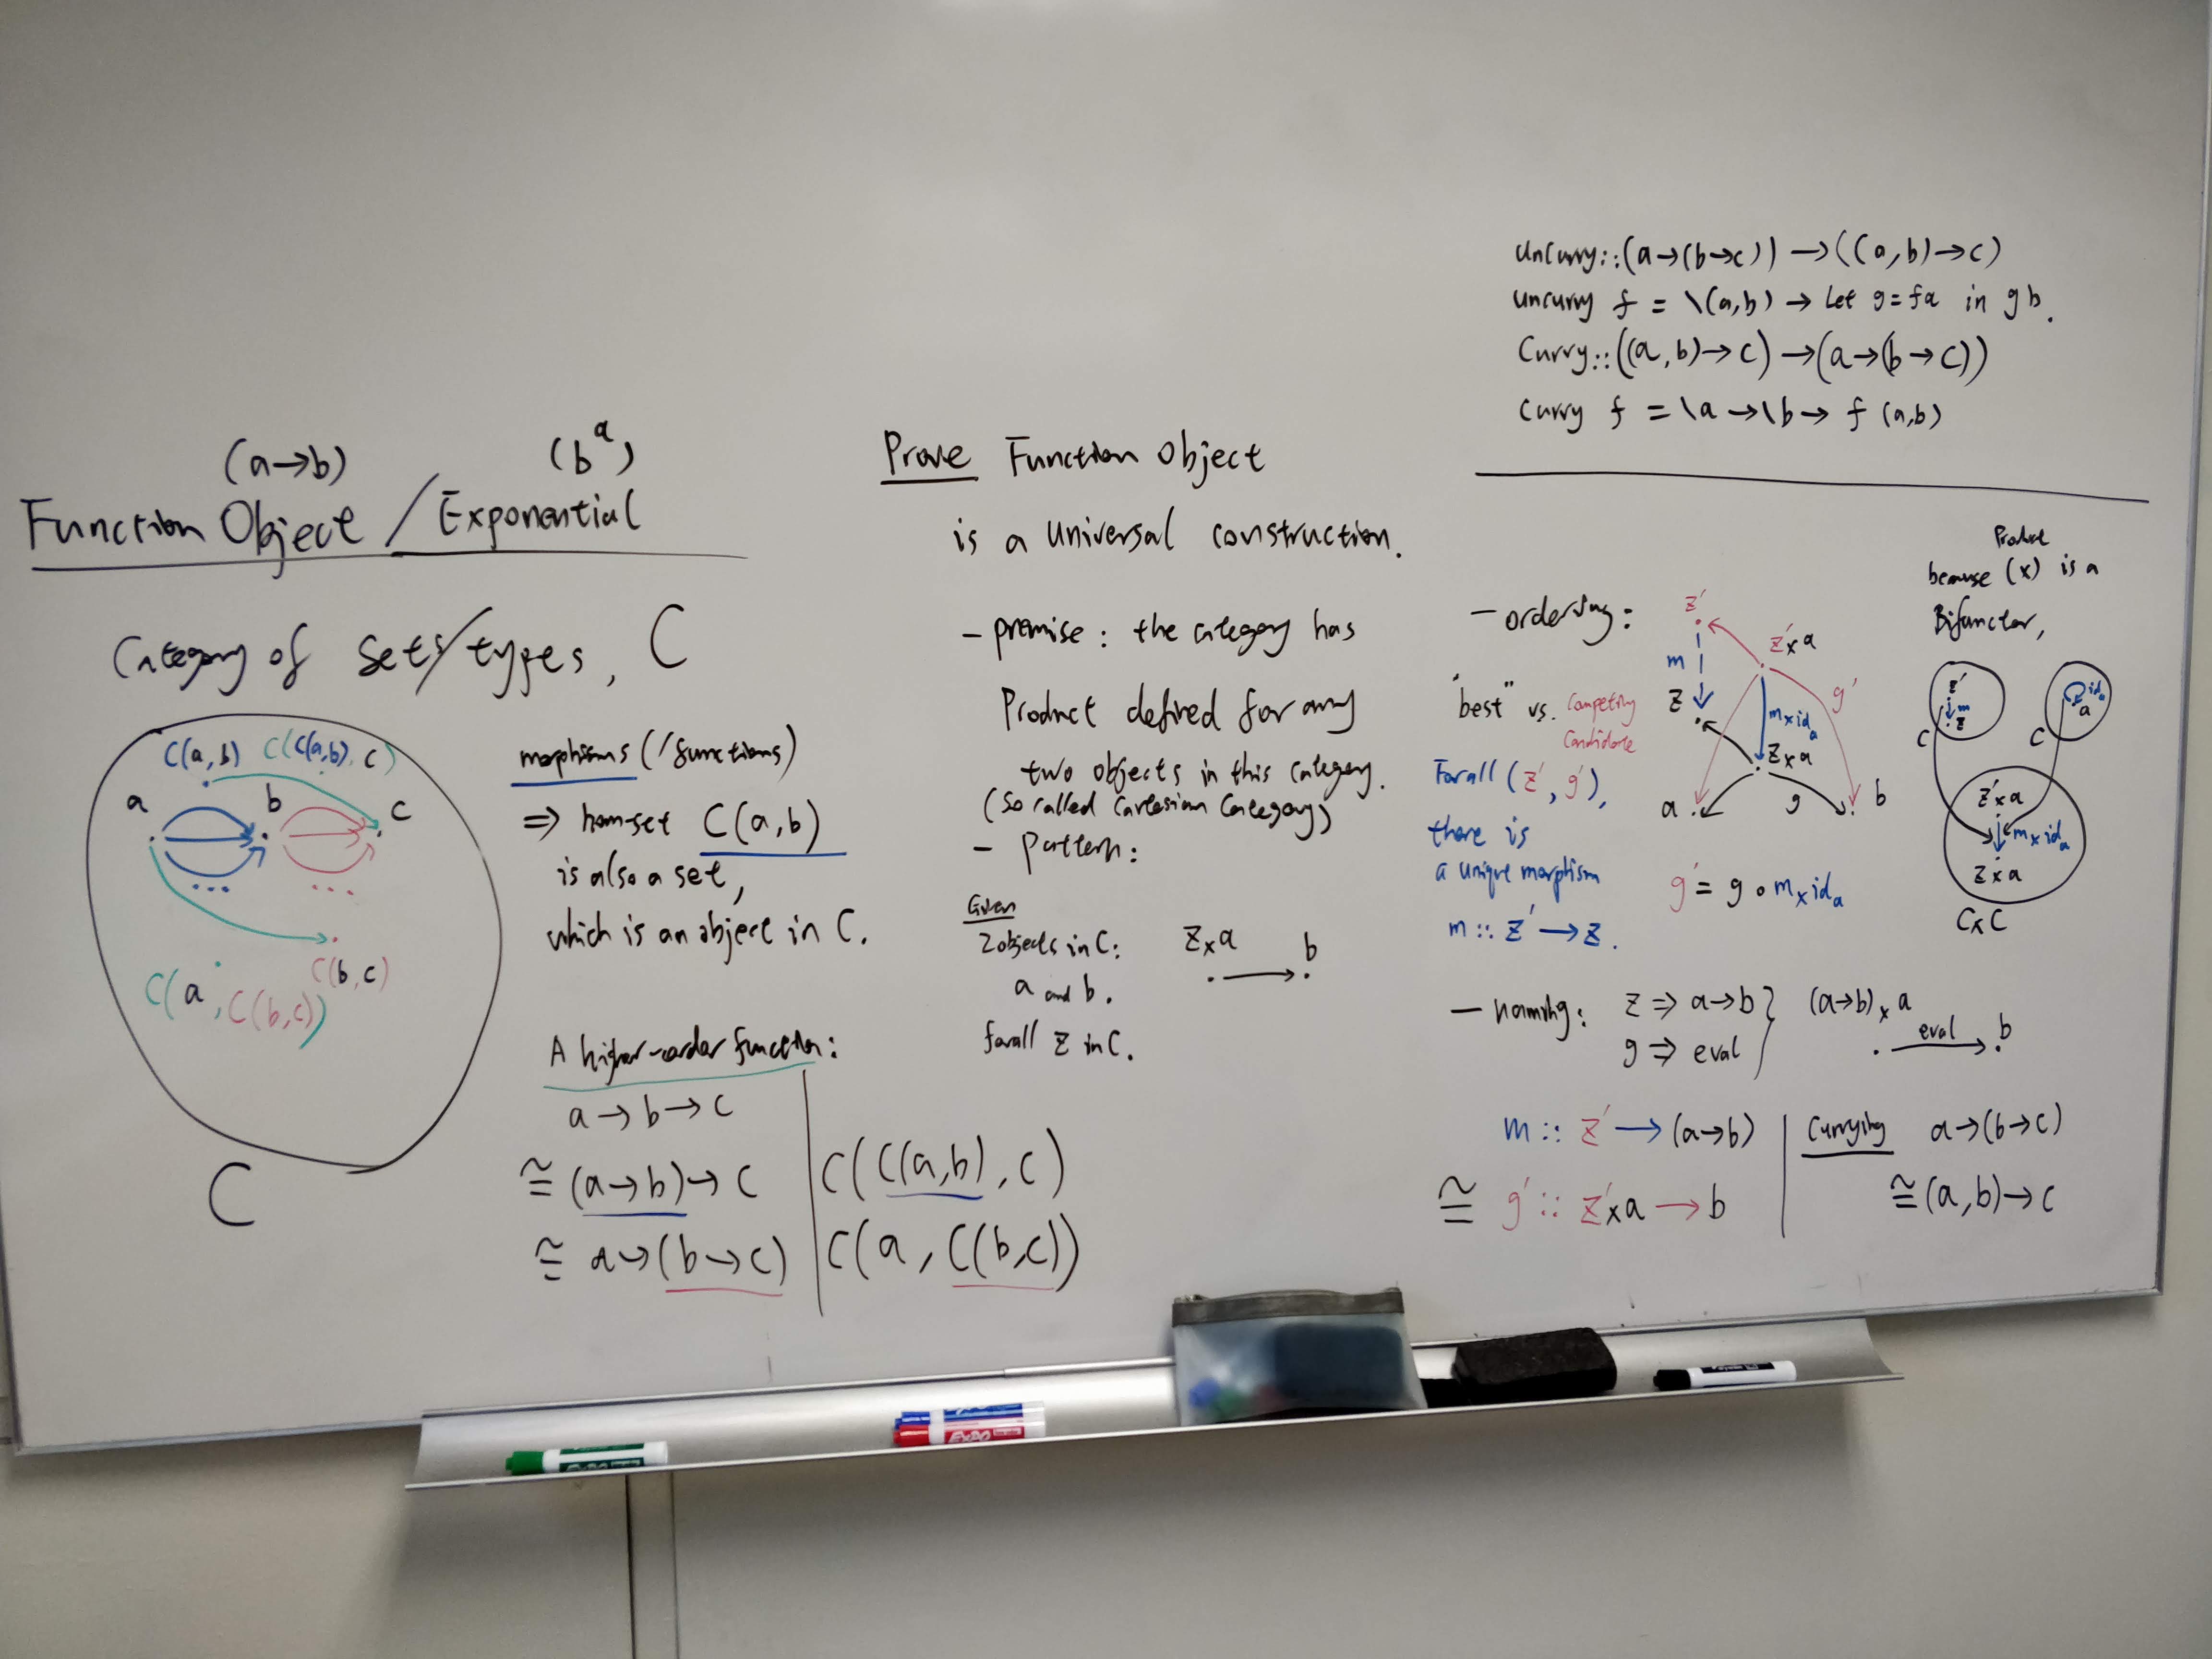 (a→b) (bᵃ)
Function Object / Exponential
Category of sets/types, C
C(a,b) C(C(a,b), c)
a b c
... ...
C(b,c)
C(a, C(b,c))
C
morphisms (/functions)
⇒ hom-set C(a,b)
is also a set,
which is an object in C.
A higher-order function:
a→b→c
≅ (a→b)→c | C(C(a,b), c)
≅ a→(b→c) | C(a, C(b,c))
Prove Function Object
is a universal construction.
- premise: the category has
Product defined for any
two objects in this category.
(so called Cartesian Category)
- pattern:
Given
2 objects in C:
a and b.
forall z in C.
z×a → b
uncurry::(a→(b→c))→((a,b)→c)
uncurry f = \(a,b) → let g=fa in g b.
Curry::((a,b)→c)→(a→(b→c))
curry f = \a→\b→ f (a,b)
- ordering:
"best" vs. competing
candidate
Forall (z', g'),
there is
a unique morphism
m :: z' → z.
z' z'×a
m g'
z m×idₐ
z×a
a g b
g' = g ∘ m×idₐ
Product
because (×) is a
Bifunctor,
z' m z
idₐ a
C C
z'×a
m×idₐ
z×a
C×C
- naming: z ⇒ a→b } (a→b)×a
g ⇒ eval eval b
m :: z' → (a→b) | Currying a→(b→c)
≅ g' :: z'×a → b | ≅ (a,b)→c
EXPO